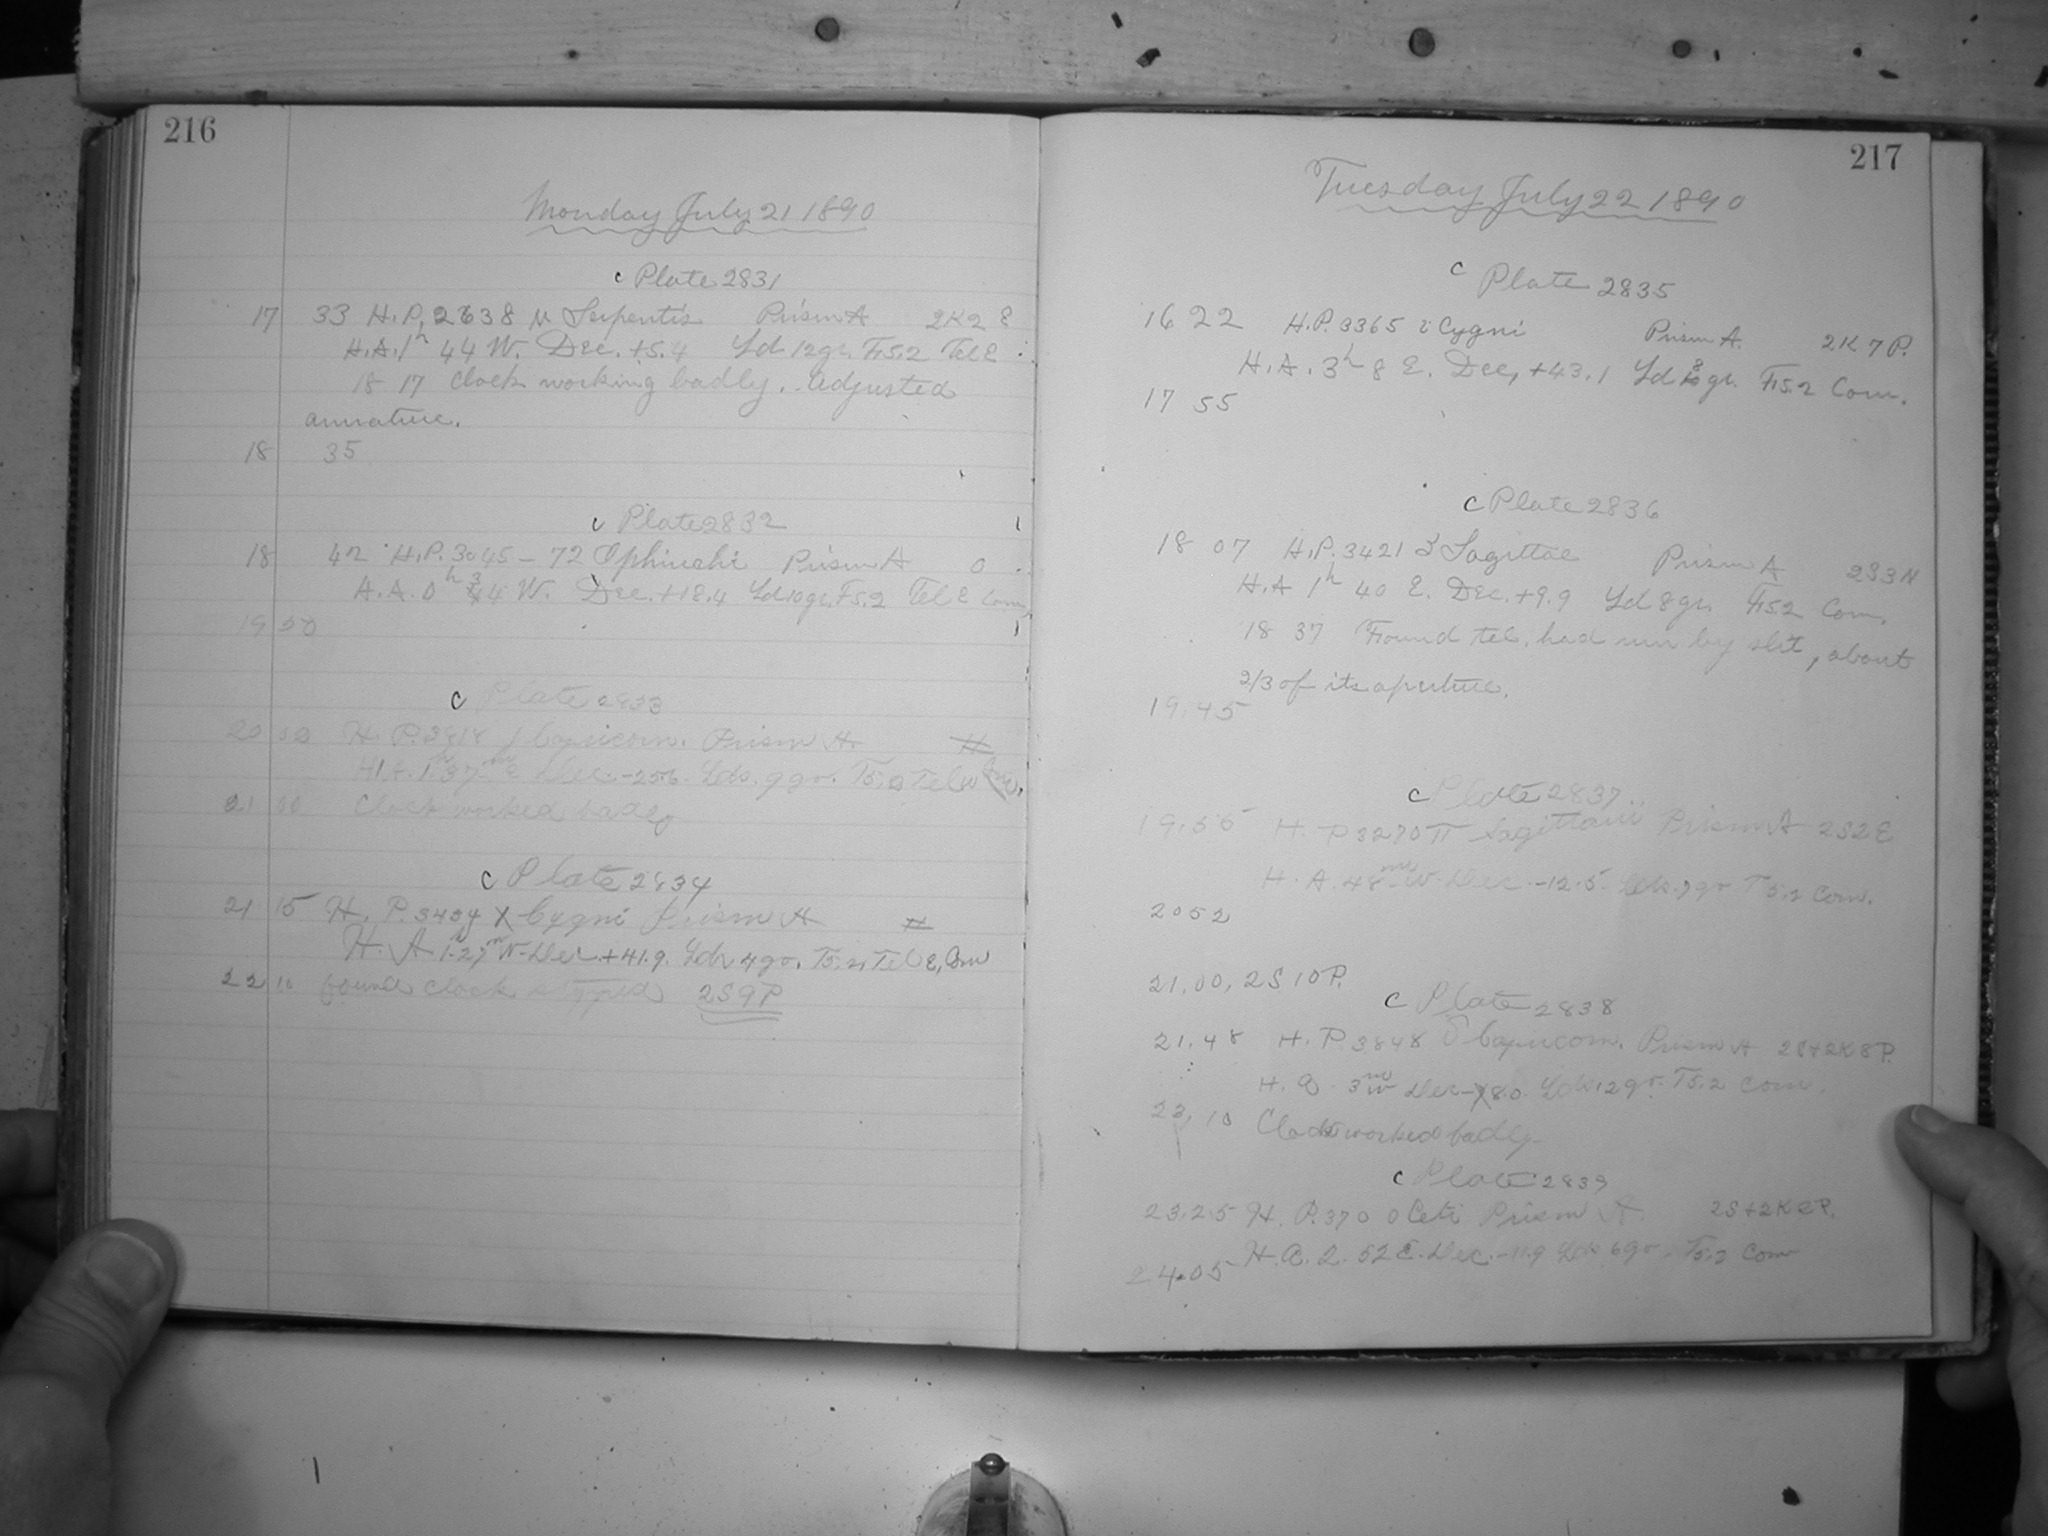 216
Monday July 21 1890
c Plate 2831
17 33 H.P. 2638 μ Serpentis Prism A 2K2E
H.A. 1h 44 W. Dec. +5.4 Ld 12gr. F5.2 Tel E
18 17 Clock working badly. Adjusted
armature.
18 35
c Plate 2832
18 42 H.P. 3045 - 72 Ophiuchi Prism A 0
H.A. 0h 34 W. Dec. +18.4 Ld 10gr. F5.2 Tel E Com
19 50
c Plate 2833
20 H. P. Capricorn. Prism A.
H.A. 1h 37m E Dec. -25.6 Lds. 9gr. F5.2 Tel W
21 00 Clock worked badly
c Plate 2834
21 15 H. P. 3434 χ Cygni Prism A
H. A 1h 27m W. Dec. +41.9. Lds 4gr. F5.2, Tel E, Com
22 10 found clock stopped 2S9P
217
Tuesday July 22 1890
c Plate 2835
16 22 H.P. 3365 ι Cygni Prism A. 2K7P.
H.A. 3h 8 E. Dec. +43.1 Ld gr. F5.2 Com.
17 55
c Plate 2836
18 07 H.P. 3421 ζ Sagittae Prism A 2S3N
H.A 1h 40 E. Dec. +9.9 Ld 8gr. F5.2 Com.
18 37 Found tel. had run by slit, about
2/3 of its aperture.
19.45
c Plate 2837
19.55 H. P 3270 π Sagittarii Prism A 2S2E
H. A. 48m W. Dec. -12.5 Lds. 7gr F5.2 Com.
20 52
21.00, 2S10P.
c Plate 2838
21.48 H. P. 3848 δ Capricorn. Prism A 2S+2K8P.
H. A 3m W Dec - 80 Lds. 12gr. F5.2 Com.
23, 10 Clock worked badly
c Plate 2839
23.25 H. P. 370 o Ceti Prism A. 2S+2K2P.
H.A. 2. 52 E. Dec. -11.9 Lds 6gr. F5.2 Com
24.05